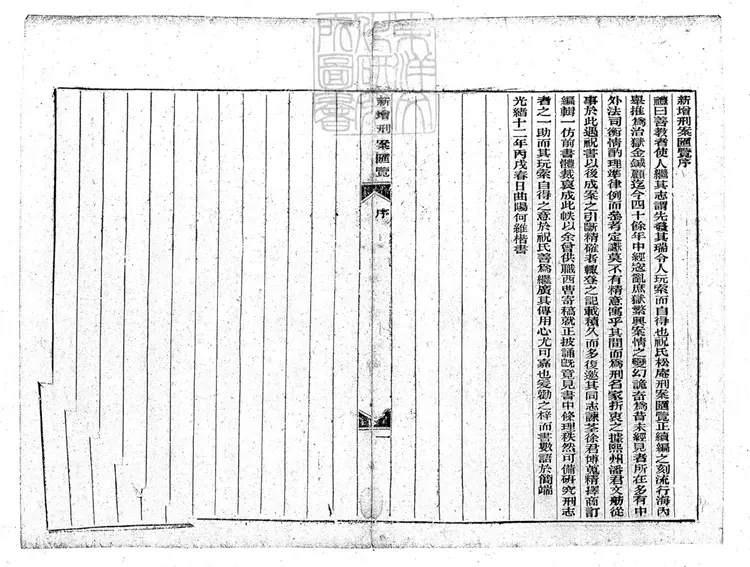 新增刑案匯覽序
禮曰善教者使人繼其志謂先發其端令人玩索而自得也祝氏松庵刑案匯覽正續編之刻流行海內
舉推為治獄金鍼顧迄今四十餘年中經寇亂庶獄繁興案情之變幻詭奇為昔未經見者所在多有中
外法司衡情酌理準律例而參考定讞莫不有精意寓乎其間而為刑名家折衷之據熙州潘君文舫從
事於此遇祝書以後成案之引斷精確者輒登之記載積久而多復邀其同志諫荃徐君博蒐精擇商訂
編輯一仿前書體裁裒成此帙以余曾供職西曹寄稿就正披誦旣竟見書中條理秩然可備硏究刑志
者之一助而其玩索自得之意於祝氏善為繼廣其傳用心尤可嘉也爰勸之梓而書數語於簡端
光緒十二年丙戌春日曲陽何維楷書
新增刑案匯覽
序